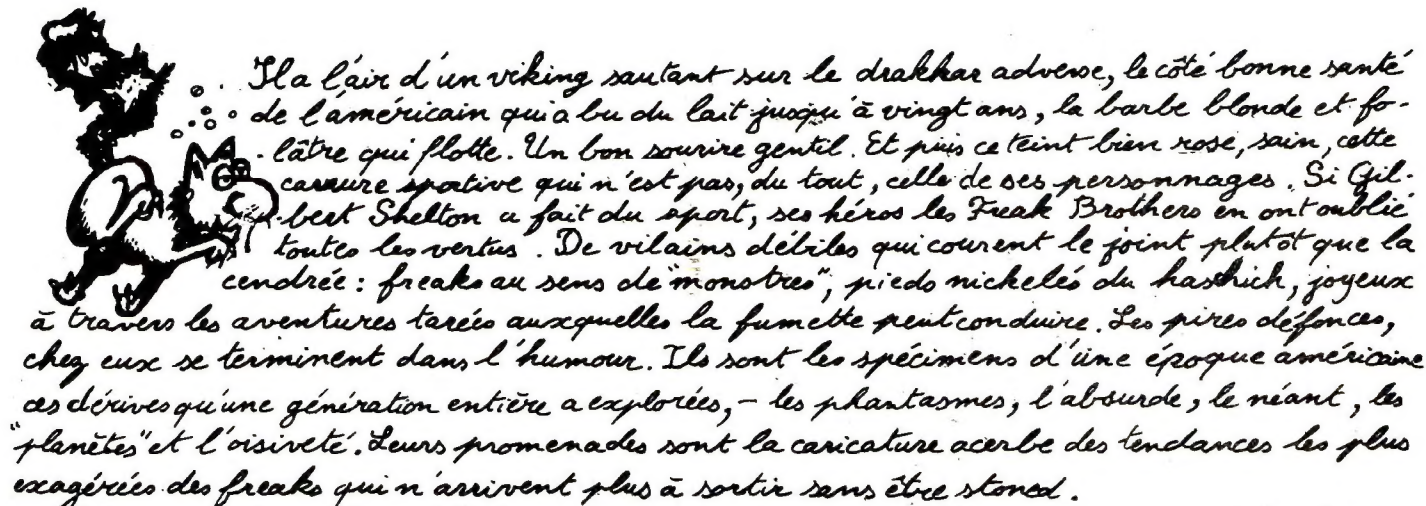 Il a l'air d'un viking sautant sur le drakkar adverse, le côté bonne santé
de l'américain qui a bu du lait jusqu'à vingt ans, la barbe blonde et fo-
lâtre qui flotte. Un bon sourire gentil. Et puis ce teint bien rose, sain, cette
carrure sportive qui n'est pas, du tout, celle de ses personnages. Si Gil-
bert Shelton a fait du sport, ses héros les Freak Brothers en ont oublié
toutes les vertus. De vilains débiles qui courent le joint plutôt que la
cendrée : freaks au sens de "monstres", pieds nickelés du haschich, joyeux
à travers les aventures tarées auxquelles la fumette peut conduire. Les pires défonces,
chez eux se terminent dans l'humour. Ils sont les spécimens d'une époque américaine
ces dérives qu'une génération entière a explorées, – les phantasmes, l'absurde, le néant, les
"planètes" et l'oisiveté. Leurs promenades sont la caricature acerbe des tendances les plus
exagérées des freaks qui n'arrivent plus à sortir sans être stoned.